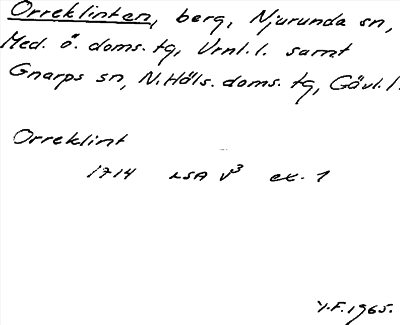 Orreklinten, berg, Njurunda sn,
Med. ö. doms. tg, Vrnl. l. samt
Gnarps sn, N. Häls. doms. tg, Gävl. l.
Orreklint
1714 LSA V³ ex. 1
Y.F. 1965.